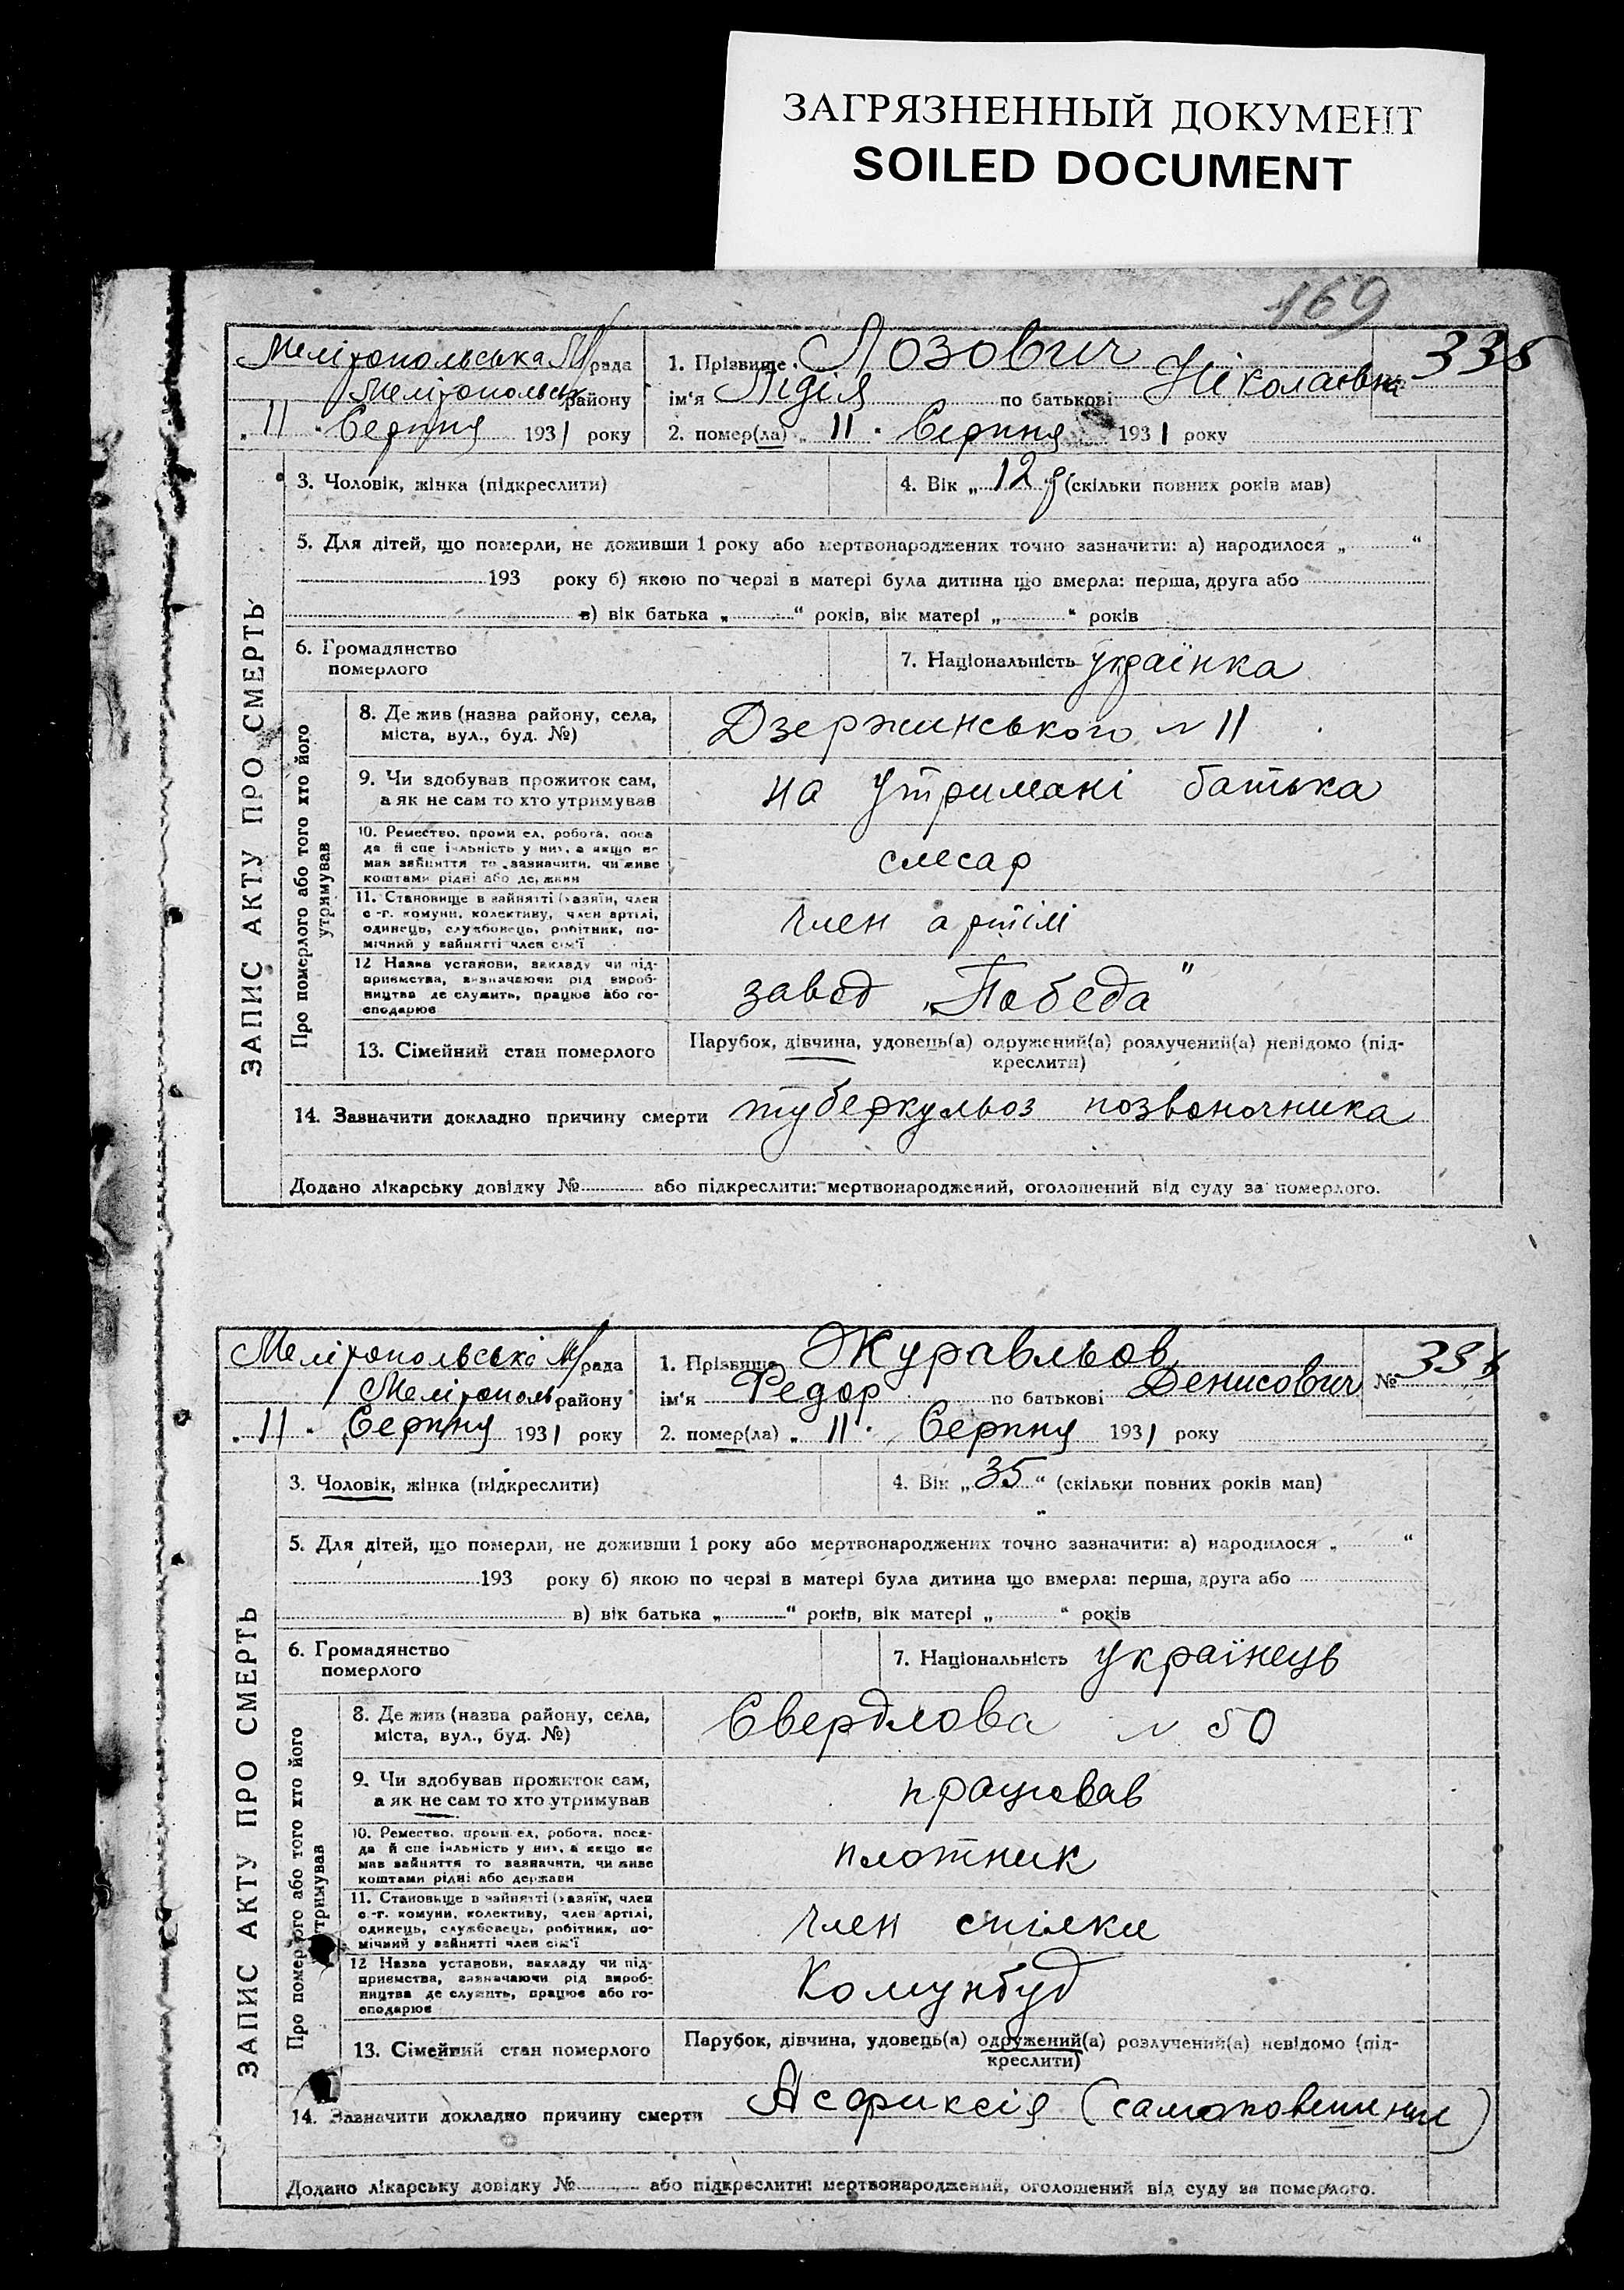 ЗАГРЯЗНЕННЫЙ ДОКУМЕНТ
SOILED DOCUMENT
169
ЗАПИС АКТУ ПРО СМЕРТЬ
Мелітопольська М/рада
Мелітопольськ району
„ 11 " Серпня 1931 року
1. Прізвище Лозович
335
ім'я Лідія по батькові Ніколаєвна
2. помер(ла) „ 11 " Серпня 1931 року
3. Чоловік, жінка (підкреслити)
4. Вік „ 12 р (скільки повних років мав)
5. Для дітей, що померли, не доживши 1 року або мертвонароджених точно зазначити: а) народилося „ “
193 року б) якою по черзі в матері була дитина що вмерла: перша, друга або
в) вік батька „ “ років, вік матері „ “ років
6. Громадянство
померлого
7. Національність українка
Про померлого або того хто його
утримував
8. Де жив (назва району, села,
міста, вул., буд. №)
Дзержинського N 11
9. Чи здобував прожиток сам,
а як не сам то хто утримував
на утримані батька
10. Ремество, промисел, робота, поса
да й спеціяльність у них, а якщо не
мав зайняття то зазначити, чи живе
коштами рідні або держави
слесар
11. Становище в зайнятті (хазяїн, член
с.-г. комуни, колективу, член артілі,
одинець, службовець, робітник, по-
мічний у зайнятті член сім'ї
член артілі
12 Назва установи, закладу чи під-
приємства, зазначаючи рід вироб-
ництва де служить, працює або го-
сподарює
завод „Победа"
13. Сімейний стан померлого
Парубок, дівчина, удовець(а) одружений(а) розлучений(а) невідомо (під-
креслити)
14. Зазначити докладно причину смерти туберкульоз позвоночника
Додано лікарську довідку № або підкреслити: мертвонароджений, оголошений від суду за померлого.
ЗАПИС АКТУ ПРО СМЕРТЬ
Мелітопольська М/рада
Мелітополь району
„ 11 " Серпня 1931 року
1. Прізвище Журавльов
№ 336
ім'я Федор по батькові Денисович
2. помер(ла) „ 11 " Серпня 1931 року
3. Чоловік, жінка (підкреслити)
4. Вік „ 35 “ (скільки повних років мав)
5. Для дітей, що померли, не доживши 1 року або мертвонароджених точно зазначити: а) народилося „ “
193 року б) якою по черзі в матері була дитина що вмерла: перша, друга або
в) вік батька „ “ років, вік матері „ “ років
6. Громадянство
померлого
7. Національність українець
Про померлого або того хто його
утримував
8. Де жив (назва району, села,
міста, вул., буд. №)
Свердлова N 50
9. Чи здобував прожиток сам,
а як не сам то хто утримував
працював
10. Ремество, промисел, робота, поса-
да й спеціяльність у них, а якщо не
мав зайняття то зазначити, чи живе
коштами рідні або держави
плотник
11. Становище в зайнятті (хазяїн, член
с.-г. комуни, колективу, член артілі,
одинець, службовець, робітник, по-
мічний у зайнятті член сім'ї
член спілки
12 Назва установи, закладу чи під-
приємства, зазначаючи рід вироб-
ництва де служить, працює або го-
сподарює
Комунбуд
13. Сімейний стан померлого
Парубок, дівчина, удовець(а) одружений(а) розлучений(а) невідомо (під-
креслити)
14. Зазначити докладно причину смерти Асфиксія (самоповешение)
Додано лікарську довідку № або підкреслити: мертвонароджений, оголошений від суду за померлого.